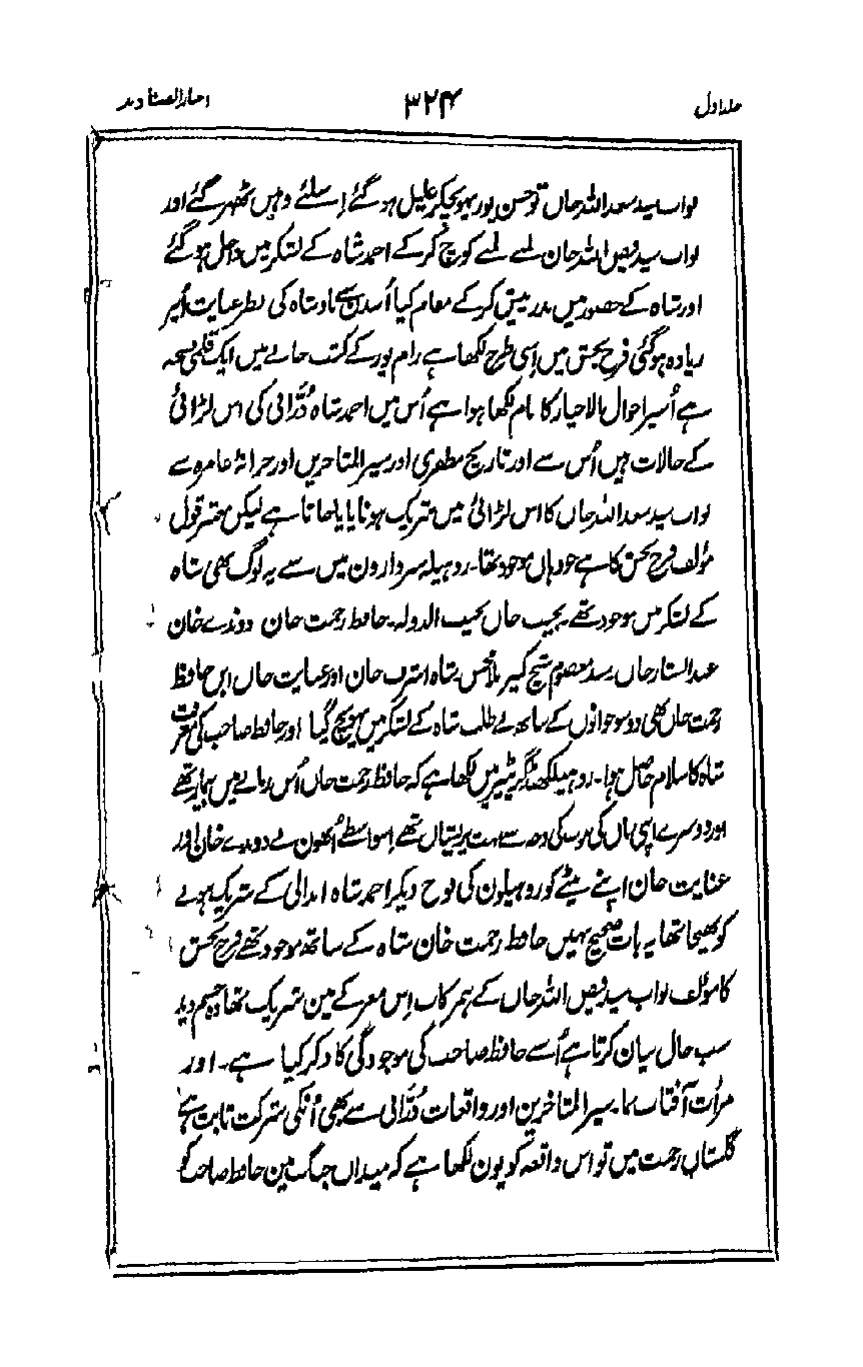 جلد اول ۳۲۴ اخبار الصنادید
نواب سید سعد اللہ خاں تو حسن پور پہونچکر علیل ہو گئے اِسلئے وہیں ٹھہر گئے اور
نواب سید فیض اللہ خان لمبے لمبے کوچ کرکے احمد شاہ کے لشکر میں داخل ہو گئے
اور شاہ کے حضور میں نذر پیش کرکے مقام کیا اُسدن سے بادشاہ کی نظر عنایت اُنپر
زیادہ ہو گئی فرح بخش میں اِسی طرح لکھا ہے رام پور کے کتب خانے میں ایک قلمی نسخہ
ہے اُسپر احوال الاخبار کا نام لکھا ہوا ہے اُس میں احمد شاہ دُرّانی کی اس لڑائی
کے حالات ہیں اُس سے اور تاریخ مظفری اور سیر المتاخرین اور خزانۂ عامرہ سے
نواب سید سعد اللہ خاں کا اس لڑائی میں شریک ہونا پایا جاتا ہے لیکن معتبر قول
مؤلف فرح بخش کا ہے جو وہاں موجود تھا۔ روہیلہ سردارون میں سے یہ لوگ بھی شاہ
کے لشکر میں موجود تھے۔ نجیب خاں نجیب الدولہ۔ حافظ رحمت خان دوندے خان
عبد الستار خاں۔ سید معصوم شیخ کبیر ملا محسن۔ شاہ اشرف خان اور عنایت خاں ابن حافظ
رحمت خاں بھی دو سو جوانوں کے ساتھ بے طلب شاہ کے لشکر میں پہونچ گیا اور حافظ صاحب کی معرفت
شاہ کا سلام حاصل ہوا۔ روہیلکھنڈ گزیٹیر میں لکھا ہے کہ حافظ رحمت خاں اُس زمانے میں بیمار تھے
اور دوسرے اپنی ماں کی موت کی وجہ سے بہت پریشاں تھے اِسواسطے اُنھون نے دوندے خان اور
عنایت خان اپنے بیٹے کو روہیلون کی فوج دیکر احمد شاہ ابدالی کے شریک ہونے
کو بھیجا تھا یہ بات صحیح نہیں حافظ رحمت خان شاہ کے ساتھ موجود تھے فرح بخش
کا مؤلف نواب سید فیض اللہ خاں کے ہمرکاب اِس معرکے مین شریک تھا وہ چشم دید
سب حال بیان کرتا ہے اُسنے حافظ صاحب کی موجودگی کا ذکر کیا ہے۔ اور
مرأت آفتاب نما۔ سیر المتاخرین اور واقعات دُرّانی سے بھی اُنکی شرکت ثابت ہے
گلستاں رحمت میں تو اس واقعہ کو یون لکھا ہے کہ میداں جنگ مین حافظ صاحب کو